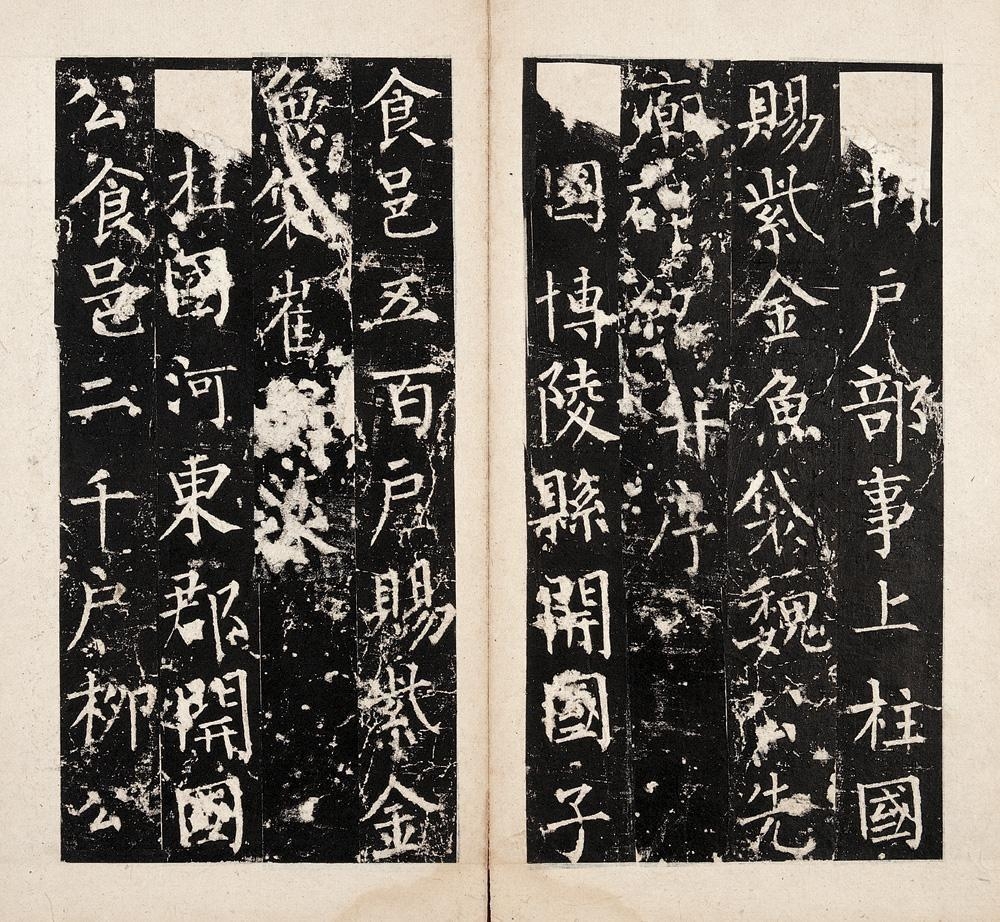 判戶部事上柱國
賜紫金魚袋魏公先
廟碑銘并序
國博陵縣開國子
食邑五百戶賜紫金
魚袋崔
柱國河東郡開國
公食邑二千戶柳公